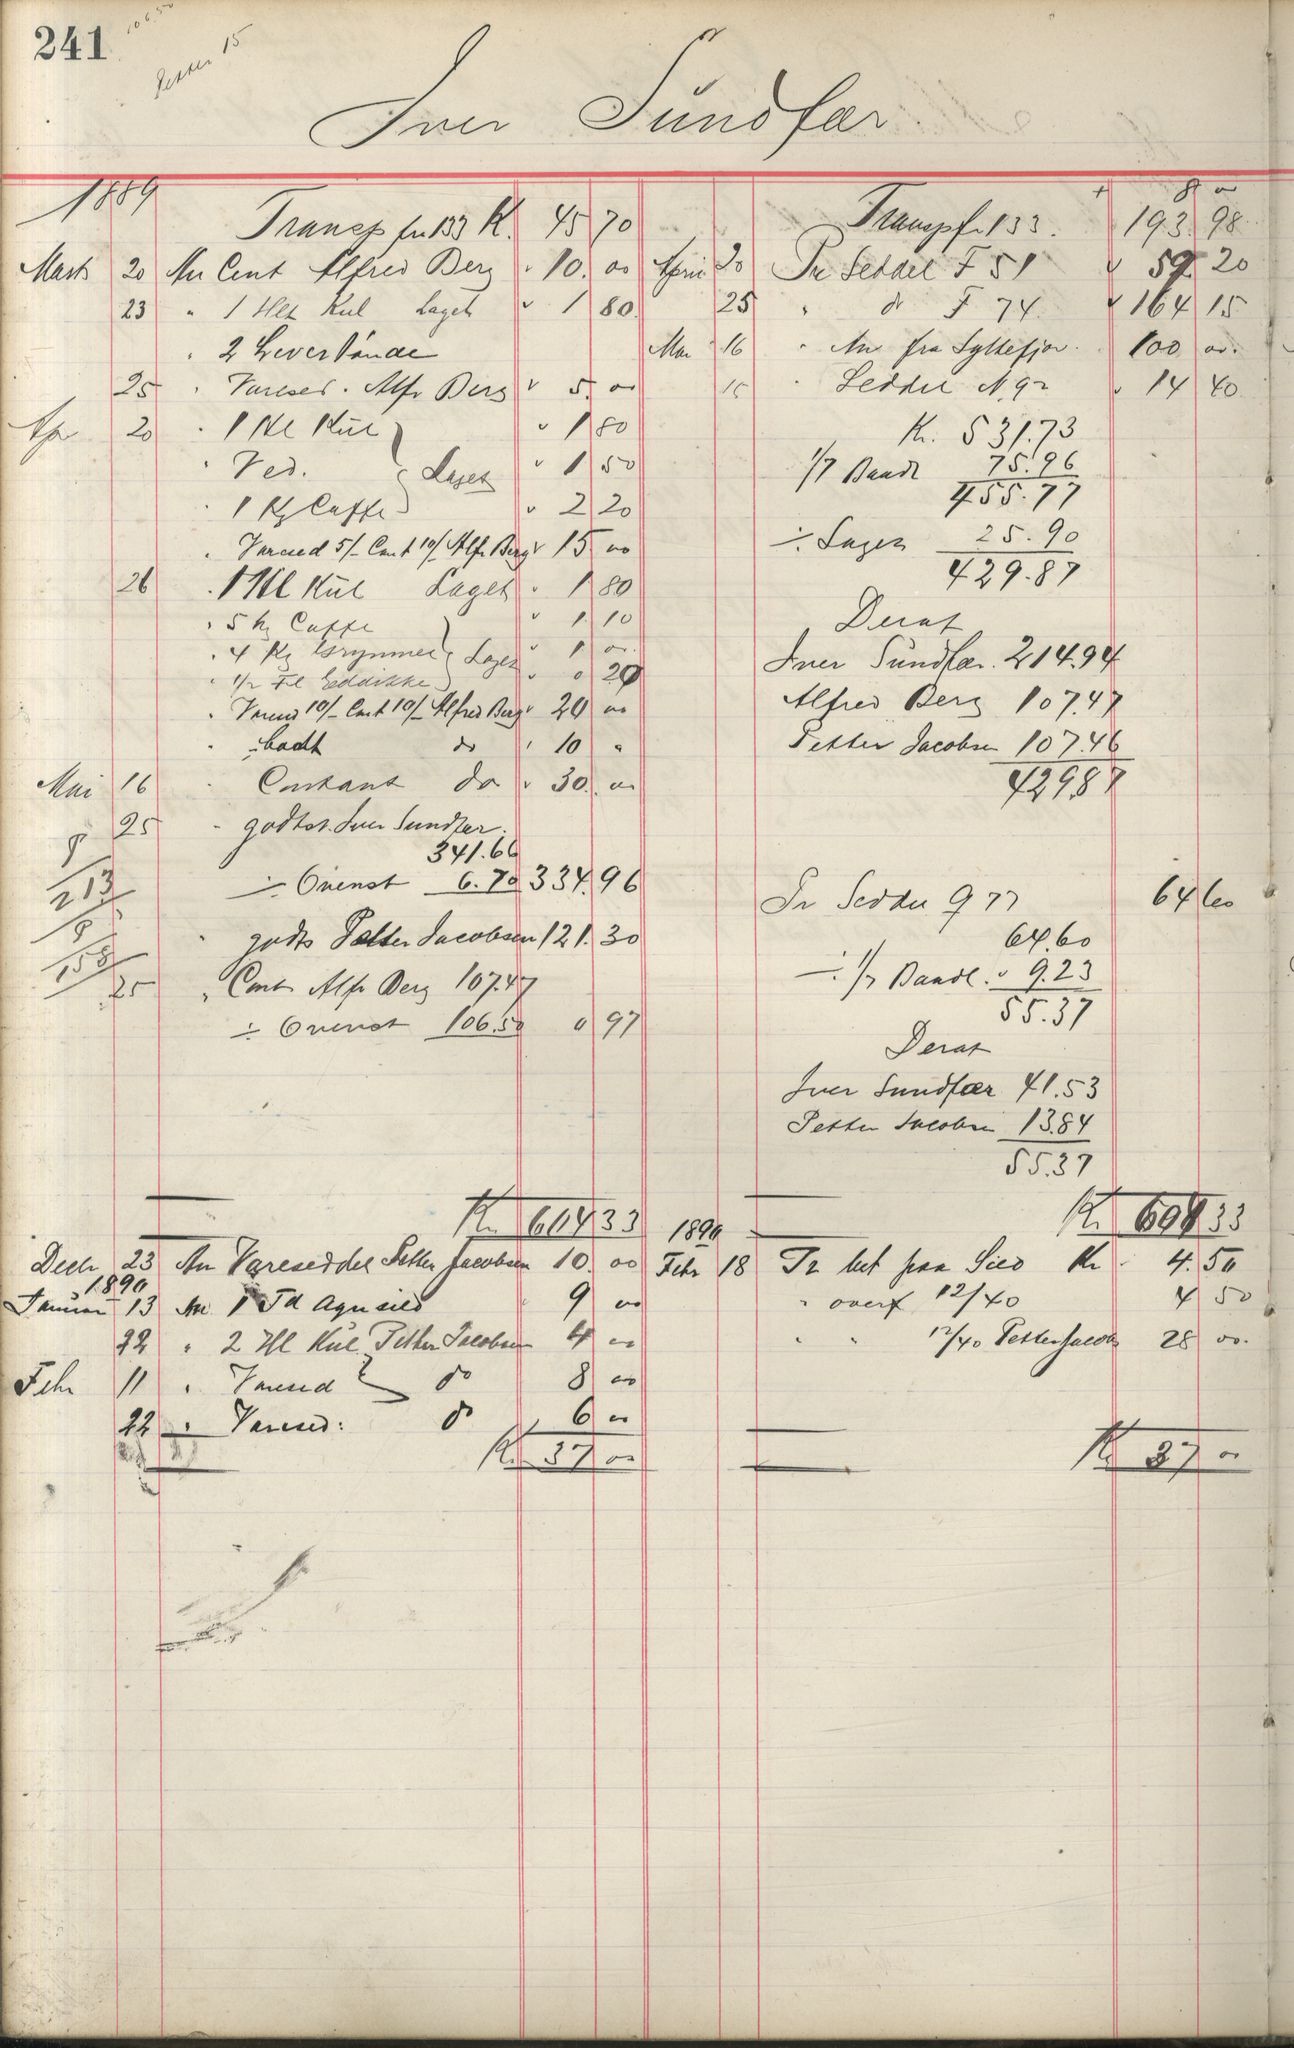 241
106.50
Petter 15
Iver Sundfær
1889
Transp fra 133 K. 45 70
Marts 20 An Cont Alfred Berg 10. 00
23 " 1 Hl Kul Laget 1 80
" 2 Levertønde
25 " Varesed. Alfr Berg 5. 00
Apr 20 " 1 Hl Kul 1 80
" Ved. Laget 1 50
" 1 Kg Caffe 2 20
" Varesed 5/- Cont 10/- Alfr Berg 15 00
26 " 1 Hl Kul Laget 1 80
" 5 Caffe 1 10
" 4 Kg Grynmel Laget 1 00
" 1/2 Fl Eddikke 0 20
" Varesed 10/- Cont 10/- Alfred Berg 20 00
" do 10 "
Mai 16 " Contant do 30. 00
25 " godtst. Iver Sundfær.
341.66
÷ Ovenst 6.70 334.96
8/213
" godts Petter Jacobsen 121.30
8/158
25 " Cont Alfr Berg 107.47
÷ Ovenst 106.50 0 97
Kr 604 33
Decb 23 An Vareseddel Petter Jacobsen 10. 00
1890
Januar 13 An 1 Td Agnsild 9 00
22 " 2 Hl Kul Petter Jacobsen 4 00
Febr 11 " Varesed do 8 00
22 " Varesed: do 6 00
Kr 37 00
8 00
Transp fr 133. 193 98
April 20 Pr Seddel F 51 59. 20
25 " do F 74. 164 15
Mai 16 " An fra Syltefjor. 100 00.
" Seddel N. 92 14 40
Kr. 531.73
1/7 Baadl 75.96
455.77
÷ Laget 25.90
429.87
Deraf
Iver Sundfær. 214.94
Alfred Berg 107.47
Petter Jacobsen 107.46
429.87
Pr Seddel 977 64 60
64.60
÷ 1/7 Baadl. 9.23
55.37
Deraf
Iver Sundfær 41.53
Petter Jacobsen 13.84
55.37
Kr 604 33
1890
Febr 18 Pr bet paa Sild Kr 4. 50
" overf 12/40 4 50
" " 12/40 Petter Jacobs 28 00.
Kr 37 00